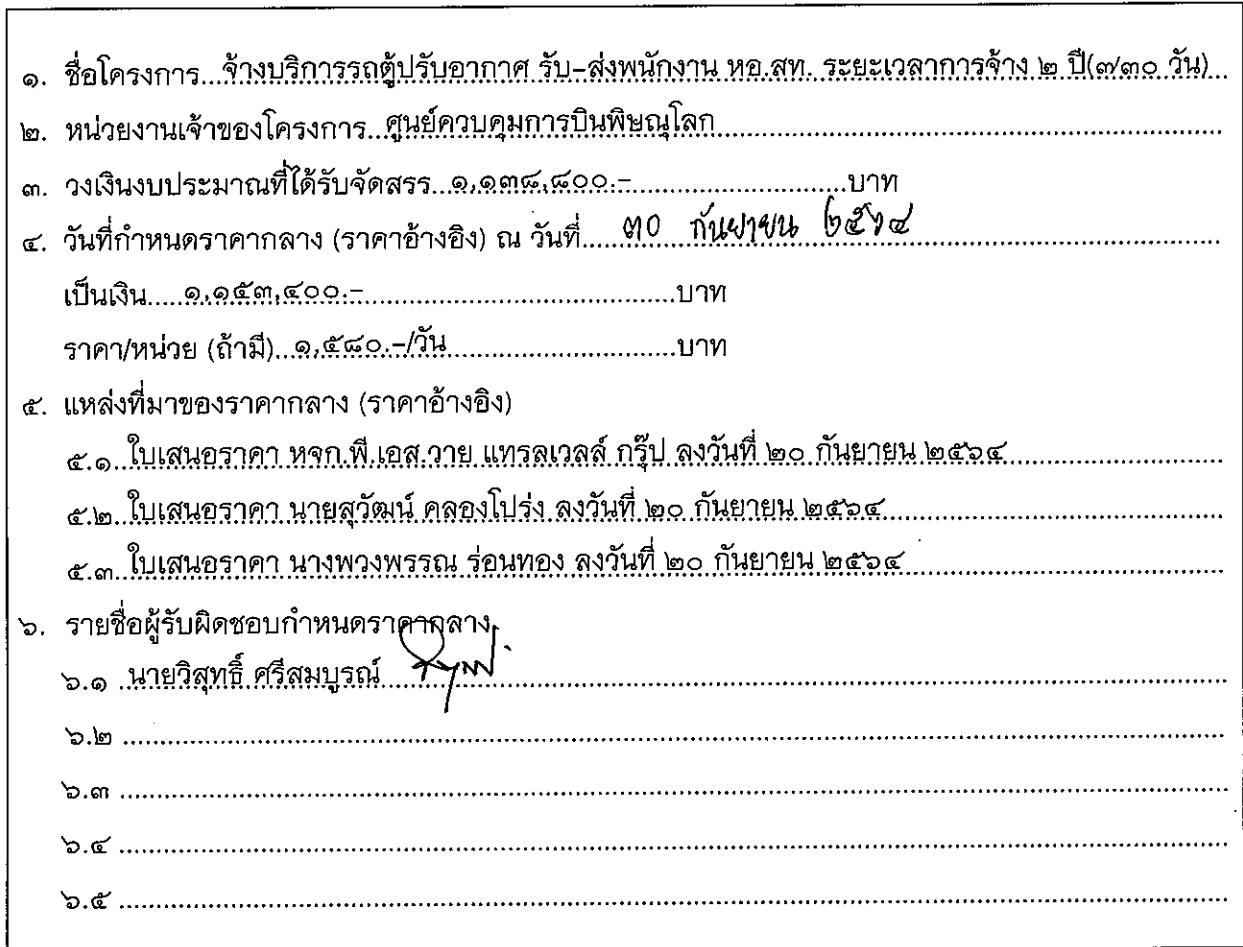 ๑. ชื่อโครงการ...จ้างบริการรถตู้ปรับอากาศ รับ-ส่งพนักงาน หอ.สท. ระยะเวลาการจ้าง ๒ ปี(๗๓๐ วัน)...
๒. หน่วยงานเจ้าของโครงการ...ศูนย์ควบคุมการบินพิษณุโลก...
๓. วงเงินงบประมาณที่ได้รับจัดสรร...๑,๑๓๘,๘๐๐.-...บาท
๔. วันที่กำหนดราคากลาง (ราคาอ้างอิง) ณ วันที่...๓๐ กันยายน ๒๕๖๔...
เป็นเงิน...๑,๑๕๓,๔๐๐.-...บาท
ราคา/หน่วย (ถ้ามี)...๑,๕๘๐.-/วัน...บาท
๕. แหล่งที่มาของราคากลาง (ราคาอ้างอิง)
๕.๑ ใบเสนอราคา หจก.พี.เอส.วาย แทรลเวลล์ กรุ๊ป ลงวันที่ ๒๐ กันยายน ๒๕๖๔...
๕.๒ ใบเสนอราคา นายสุวัฒน์ คลองโปร่ง ลงวันที่ ๒๐ กันยายน ๒๕๖๔...
๕.๓ ใบเสนอราคา นางพวงพรรณ ร่อนทอง ลงวันที่ ๒๐ กันยายน ๒๕๖๔...
๖. รายชื่อผู้รับผิดชอบกำหนดราคากลาง
๖.๑ นายวิสุทธิ์ ศรีสมบูรณ์...
๖.๒ ...
๖.๓ ...
๖.๔ ...
๖.๕ ...